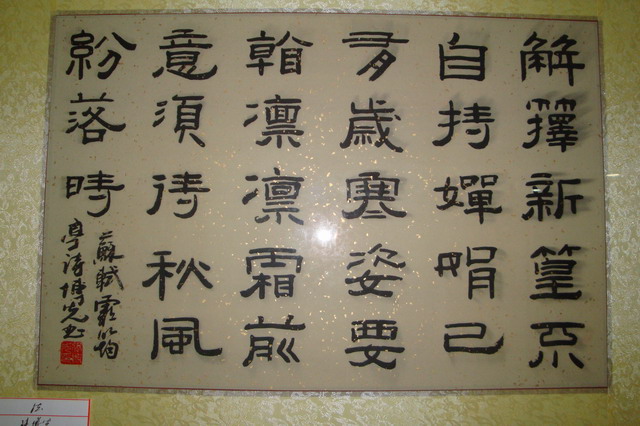 解籜新篁不
自持嬋娟已
有歲寒姿要
看凛凛霜前
意須待秋風
紛落時
蘇軾霜筠
亭詩